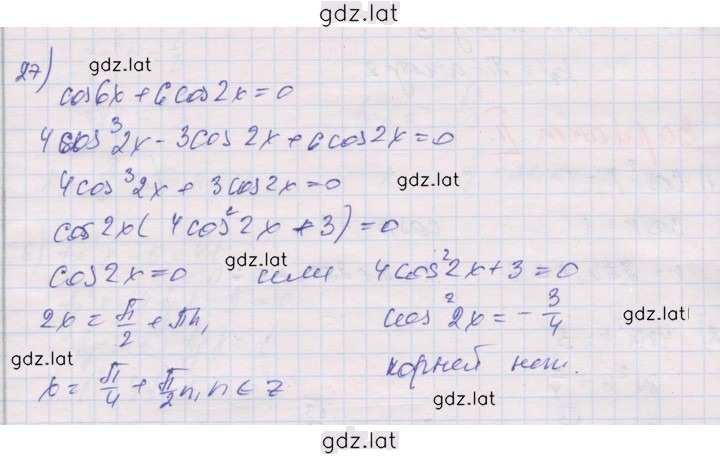 gdz.lat
27) gdz.lat
cos6x + 6cos2x = 0
4cos³2x - 3cos2x + 6cos2x = 0
4cos³2x + 3cos2x = 0 gdz.lat
cos2x(4cos²2x + 3) = 0
cos2x = 0 gdz.lat или 4cos²2x + 3 = 0
2x = π/2 + πn, cos²2x = -3/4 gdz.lat
gdz.lat корней нет.
x = π/4 + π/2 n, n ∈ Z gdz.lat
gdz.lat